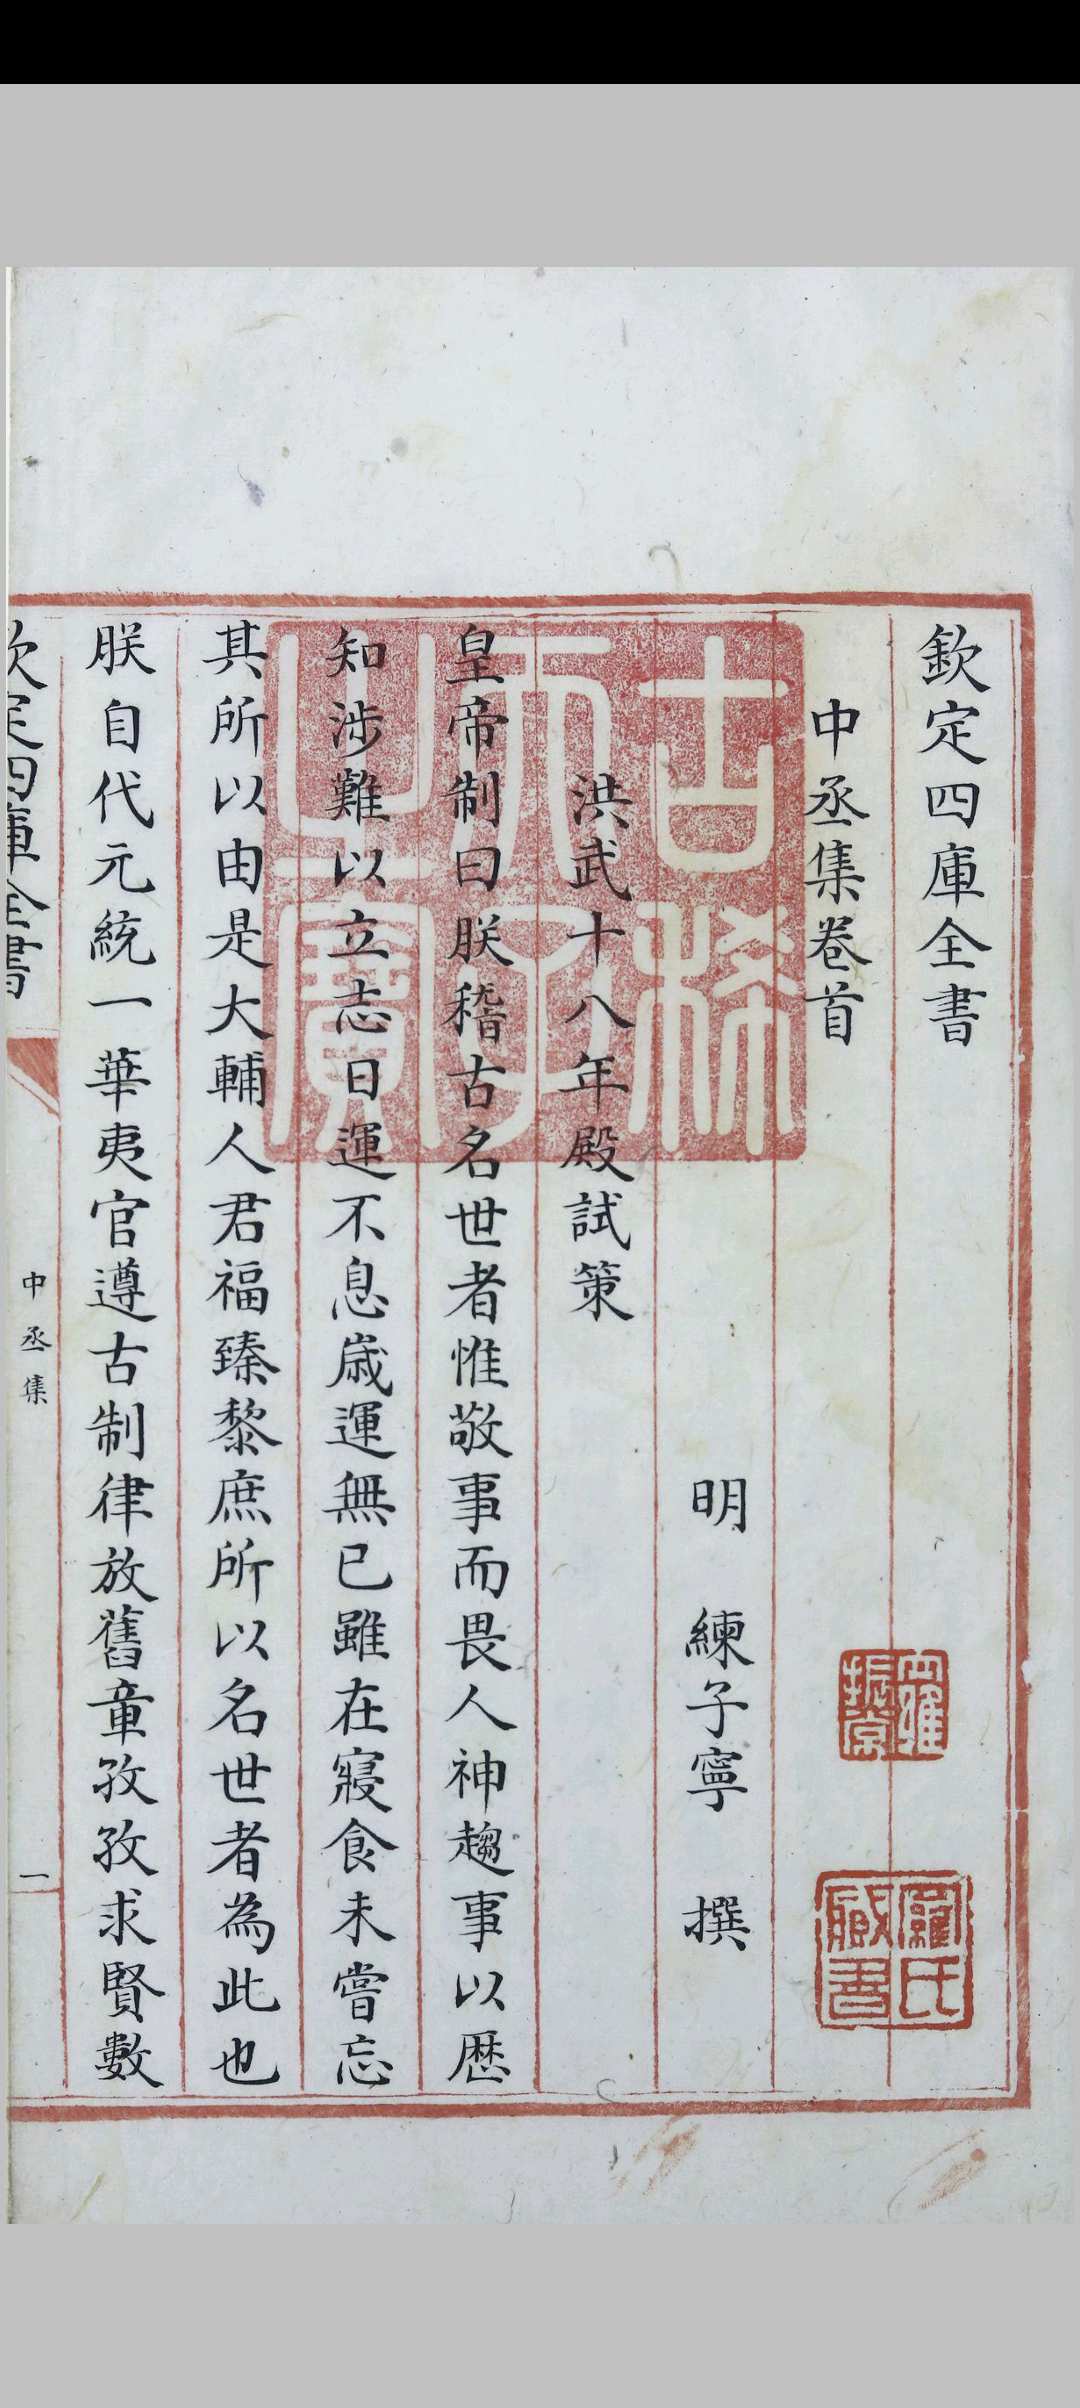 欽定四庫全書
中丞集卷首
明 練子寧 撰
洪武十八年殿試策
皇帝制曰朕稽古名世者惟敬事而畏人神趨事以歴
知涉難以立志日運不息歳運無已雖在寢食未嘗忘
其所以由是大輔人君福臻黎庶所以名世者為此也
朕自代元統一華夷官遵古制律放舊章孜孜求賢數
欽定四庫全書
中丞集
一
古稀天子之寶
羅振常
羅氏藏書